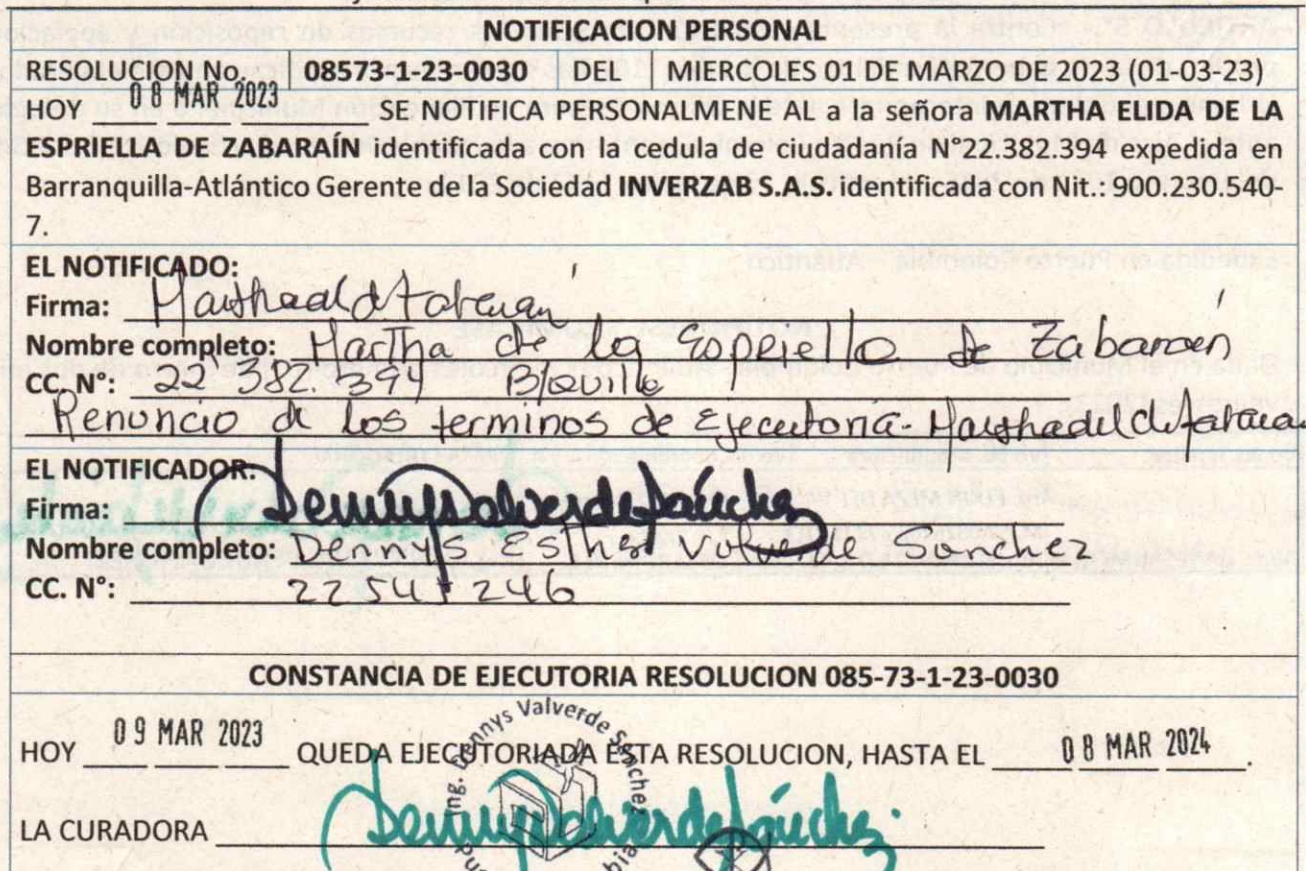 NOTIFICACION PERSONAL
RESOLUCION No.- 08573-1-23-0030 DEL MIERCOLES 01 DE MARZO DE 2023 (01-03-23)
HOY 08 MAR 2023 SE NOTIFICA PERSONALMENE AL a la señora MARTHA ELIDA DE LA
ESPRIELLA DE ZABARAÍN identificada con la cedula de ciudadanía N°22.382.394 expedida en
Barranquilla-Atlántico Gerente de la Sociedad INVERZAB S.A.S. identificada con Nit.: 900.230.540-
7.
EL NOTIFICADO:
Firma:
Nombre completo: Martha de la Espriella de Zabaraín
CC. N°: 22'382.394 B/quilla
Renuncio a los terminos de Ejecutoria-
EL NOTIFICADOR:
Firma: Dennys Valverde Sánchez
Nombre completo: Dennys Esther Valverde Sanchez
CC. N°: 22541246
CONSTANCIA DE EJECUTORIA RESOLUCION 085-73-1-23-0030
HOY 09 MAR 2023 QUEDA EJECUTORIADA ESTA RESOLUCION, HASTA EL 08 MAR 2024.
Ing. Dennys Valverde Sánchez
LA CURADORA Dennys Valverde Sánchez